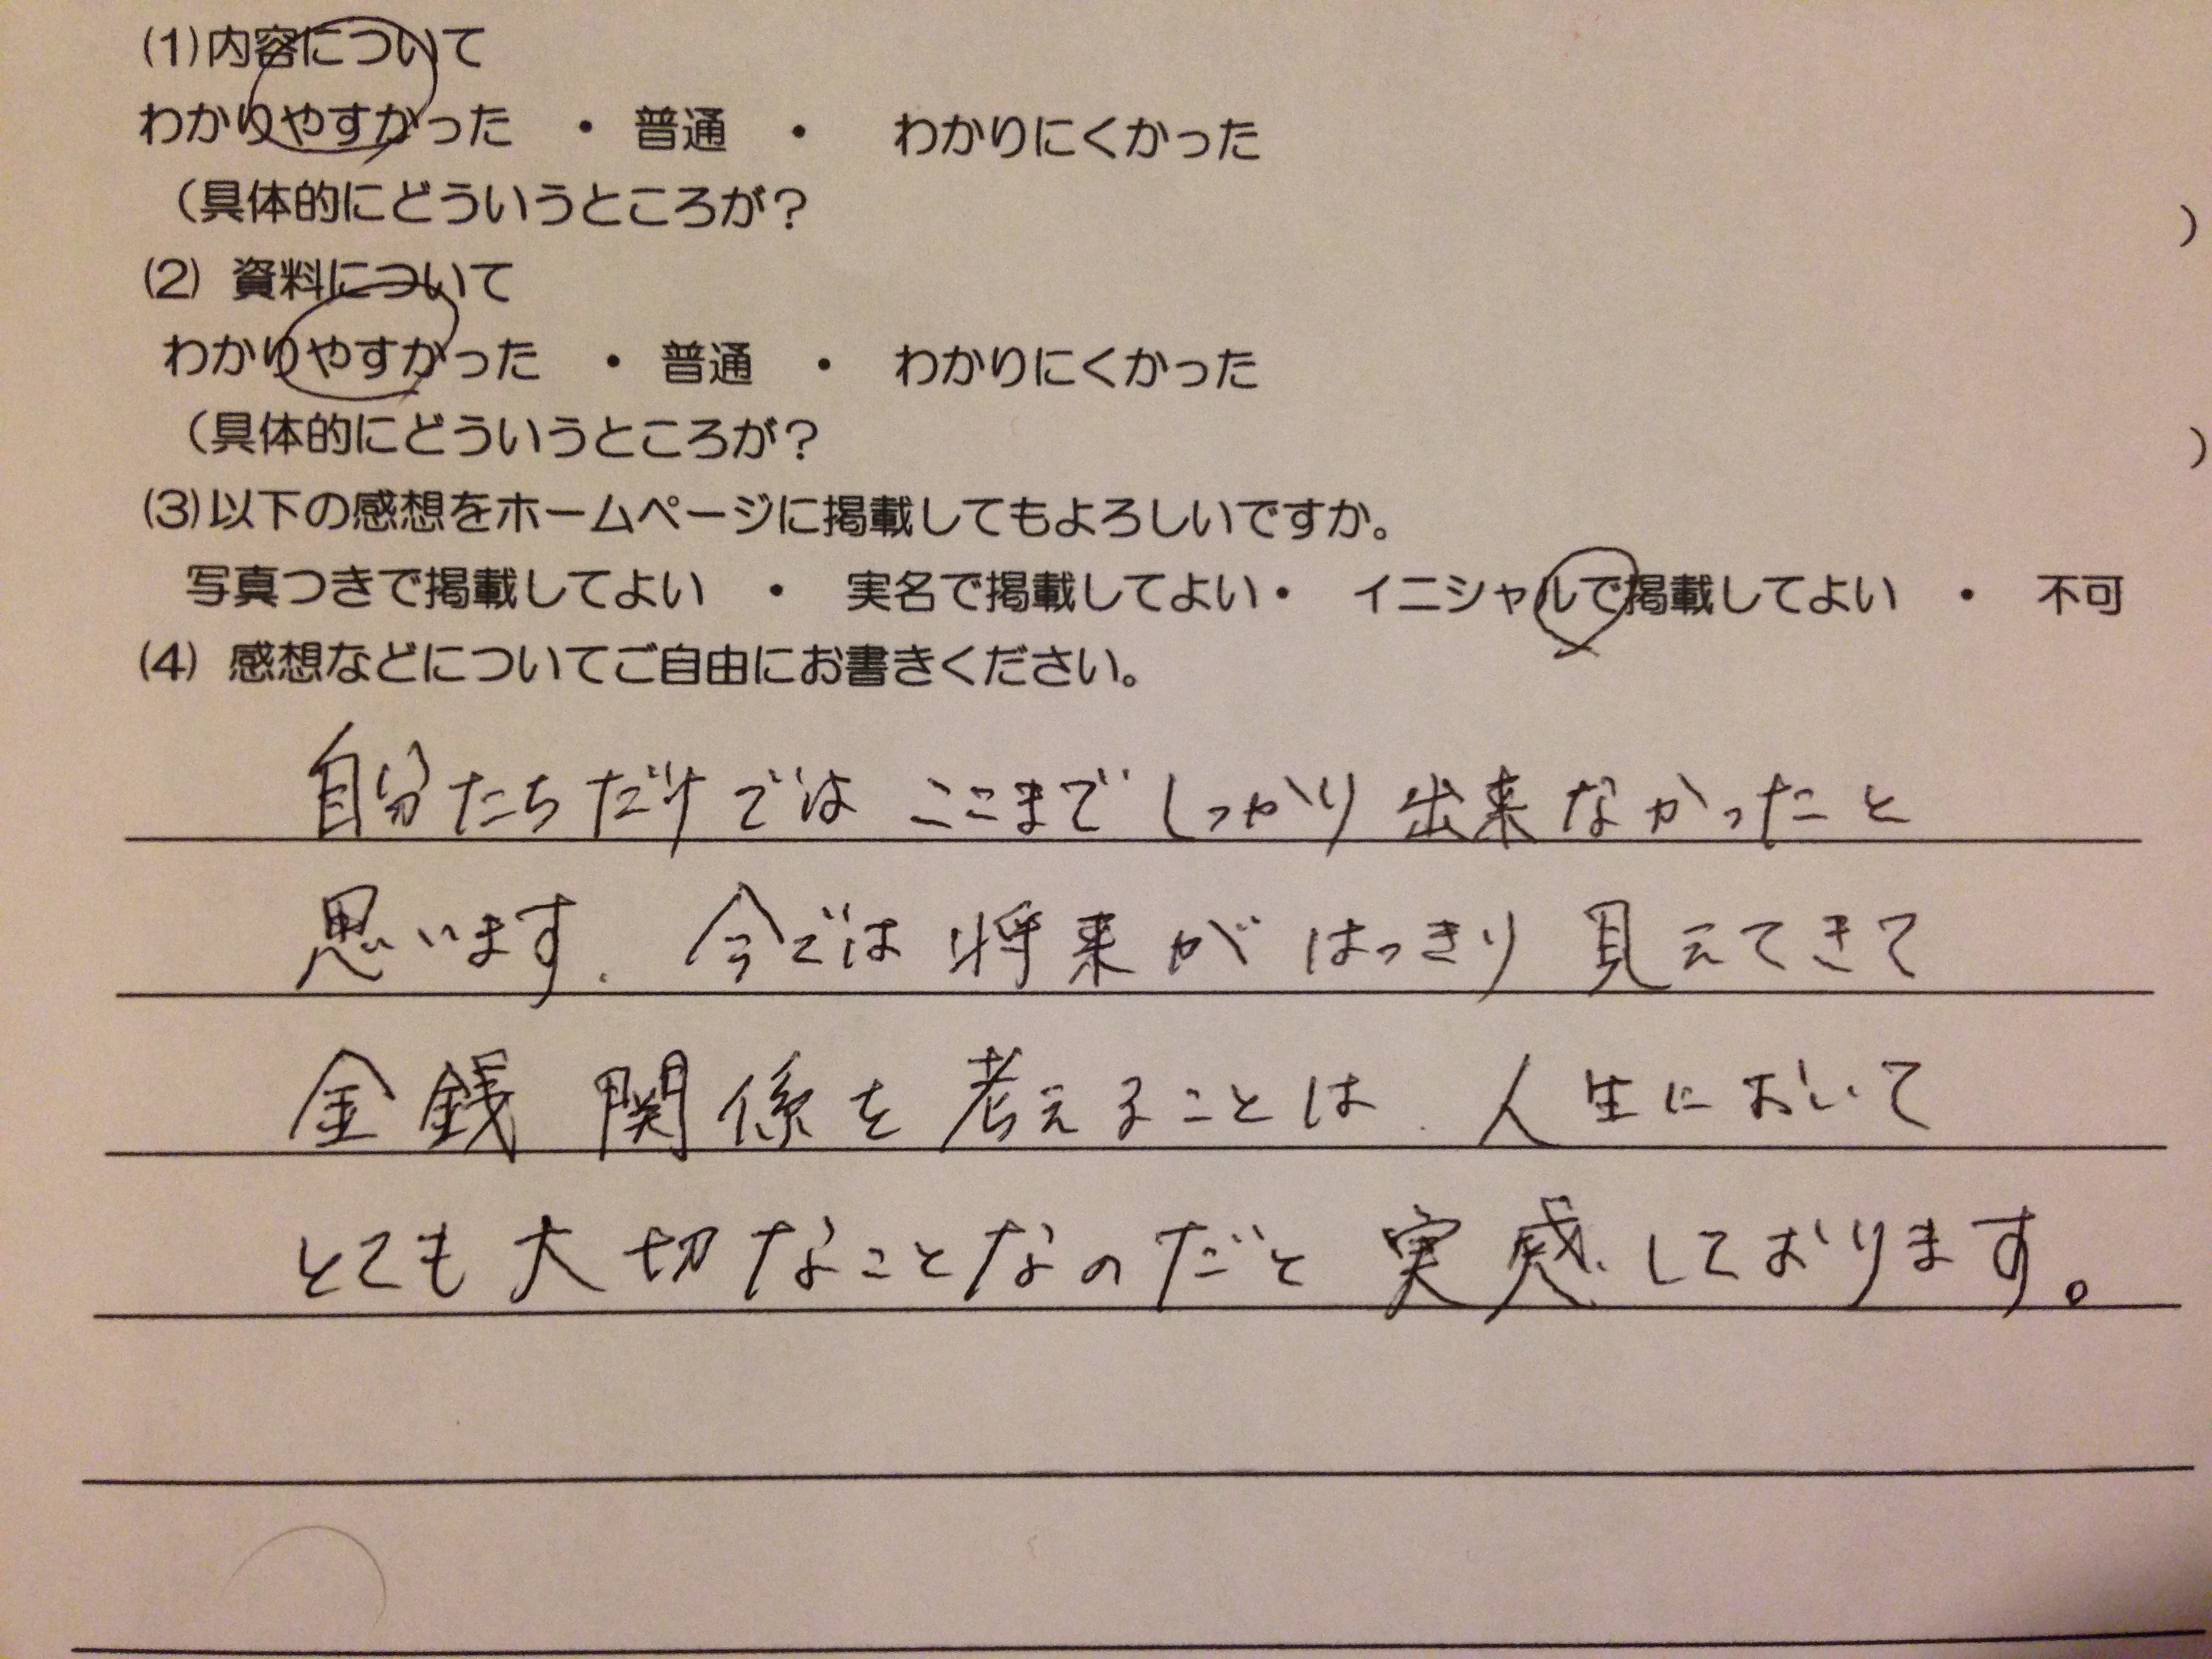 (1)内容について
わかりやすかった ・ 普通 ・ わかりにくかった
（具体的にどういうところが？ ）
(2) 資料について
わかりやすかった ・ 普通 ・ わかりにくかった
（具体的にどういうところが？ ）
(3)以下の感想をホームページに掲載してもよろしいですか。
写真つきで掲載してよい ・ 実名で掲載してよい・ イニシャルで掲載してよい ・ 不可
(4) 感想などについてご自由にお書きください。
自分たちだけでは ここまで しっかり 出来なかったと
思います. 今では 将来が はっきり 見えてきて
金銭 関係を 考えることは、人生において
とても 大切なことなのだと 実感しております。